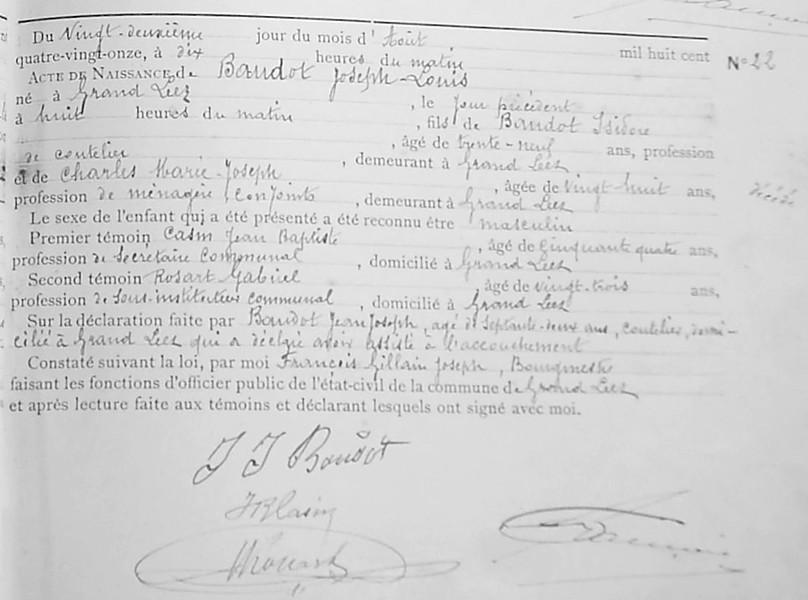 Du Vingt-deuxième jour du mois d'Août mil huit cent N° 22
quatre-vingt-onze, à dix heures du matin
ACTE DE NAISSANCE de Baudot Joseph-Louis
né à Grand Leez , le jour précédent
à huit heures du matin , fils de Baudot Isidore
, âgé de trente-neuf ans, profession
de coutelier , demeurant à Grand Leez
et de Charles Marie-Joseph , âgée de vingt huit ans,
profession de ménagère, Conjoints , demeurant à Grand Leez
Le sexe de l'enfant qui a été présenté a été reconnu être masculin
Premier témoin Jean Baptiste , âgé de Cinquante quatre ans,
profession de Secrétaire Communal , domicilié à Grand Leez
Second témoin Rosart Gabriel , âgé de vingt-trois ans,
profession de Sous-instituteur communal , domicilié à Grand Leez
Sur la déclaration faite par Baudot Jean Joseph, agé de Septante-deux ans, coutelier, domi-
cilié à Grand Leez qui a déclaré avoir assisté à l'accouchement
Constaté suivant la loi, par moi François Gillain Joseph, Bourgmestre
faisant les fonctions d'officier public de l'état-civil de la commune de Grand Leez
et après lecture faite aux témoins et déclarant lesquels ont signé avec moi.
J J Baudot